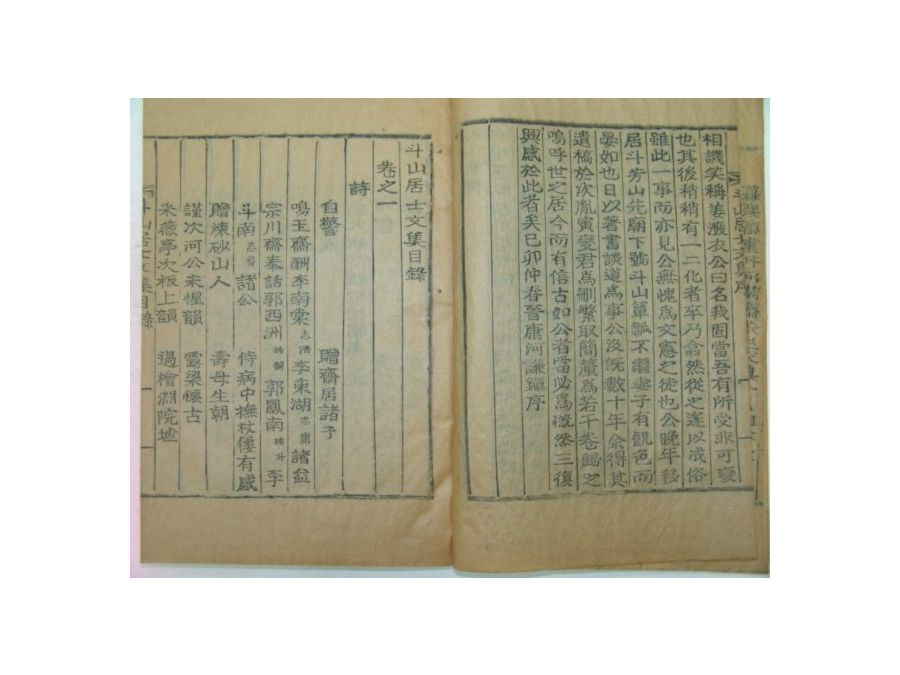 相譏笑稱姜澣衣公曰名我固當吾有所受非可變
也其後稍稍有一二化者卒乃翕然從之遂以成俗
雖此一事而亦見公無愧爲文憲之徒也公晩年移
居斗芳山先廟下號斗山簞瓢不繼妻子有飢色而
晏如也日以著書談道爲事公沒旣數十年余得其
遺稿於次胤寅燮君爲刪繁取簡釐爲若干卷歸之
嗚呼世之居今而有信古如公者當必爲慨然三復
興感於此者矣己卯仲春晉康河謙鎭序
斗山居士文集目錄
卷之一
詩
自警 贈齋居諸子
鳴玉齋酬李南棠 李東湖 諸益
宗川齋奉話郭西洲 郭鳳南 李
斗南 諸公 侍病中撫杖僂有感
贈煉砂山人 壽母生朝
謹次河公未惺韻 雷梁懷古
采薇亭次板上韻 過檜淵院墟
斗山居士文集目錄 一